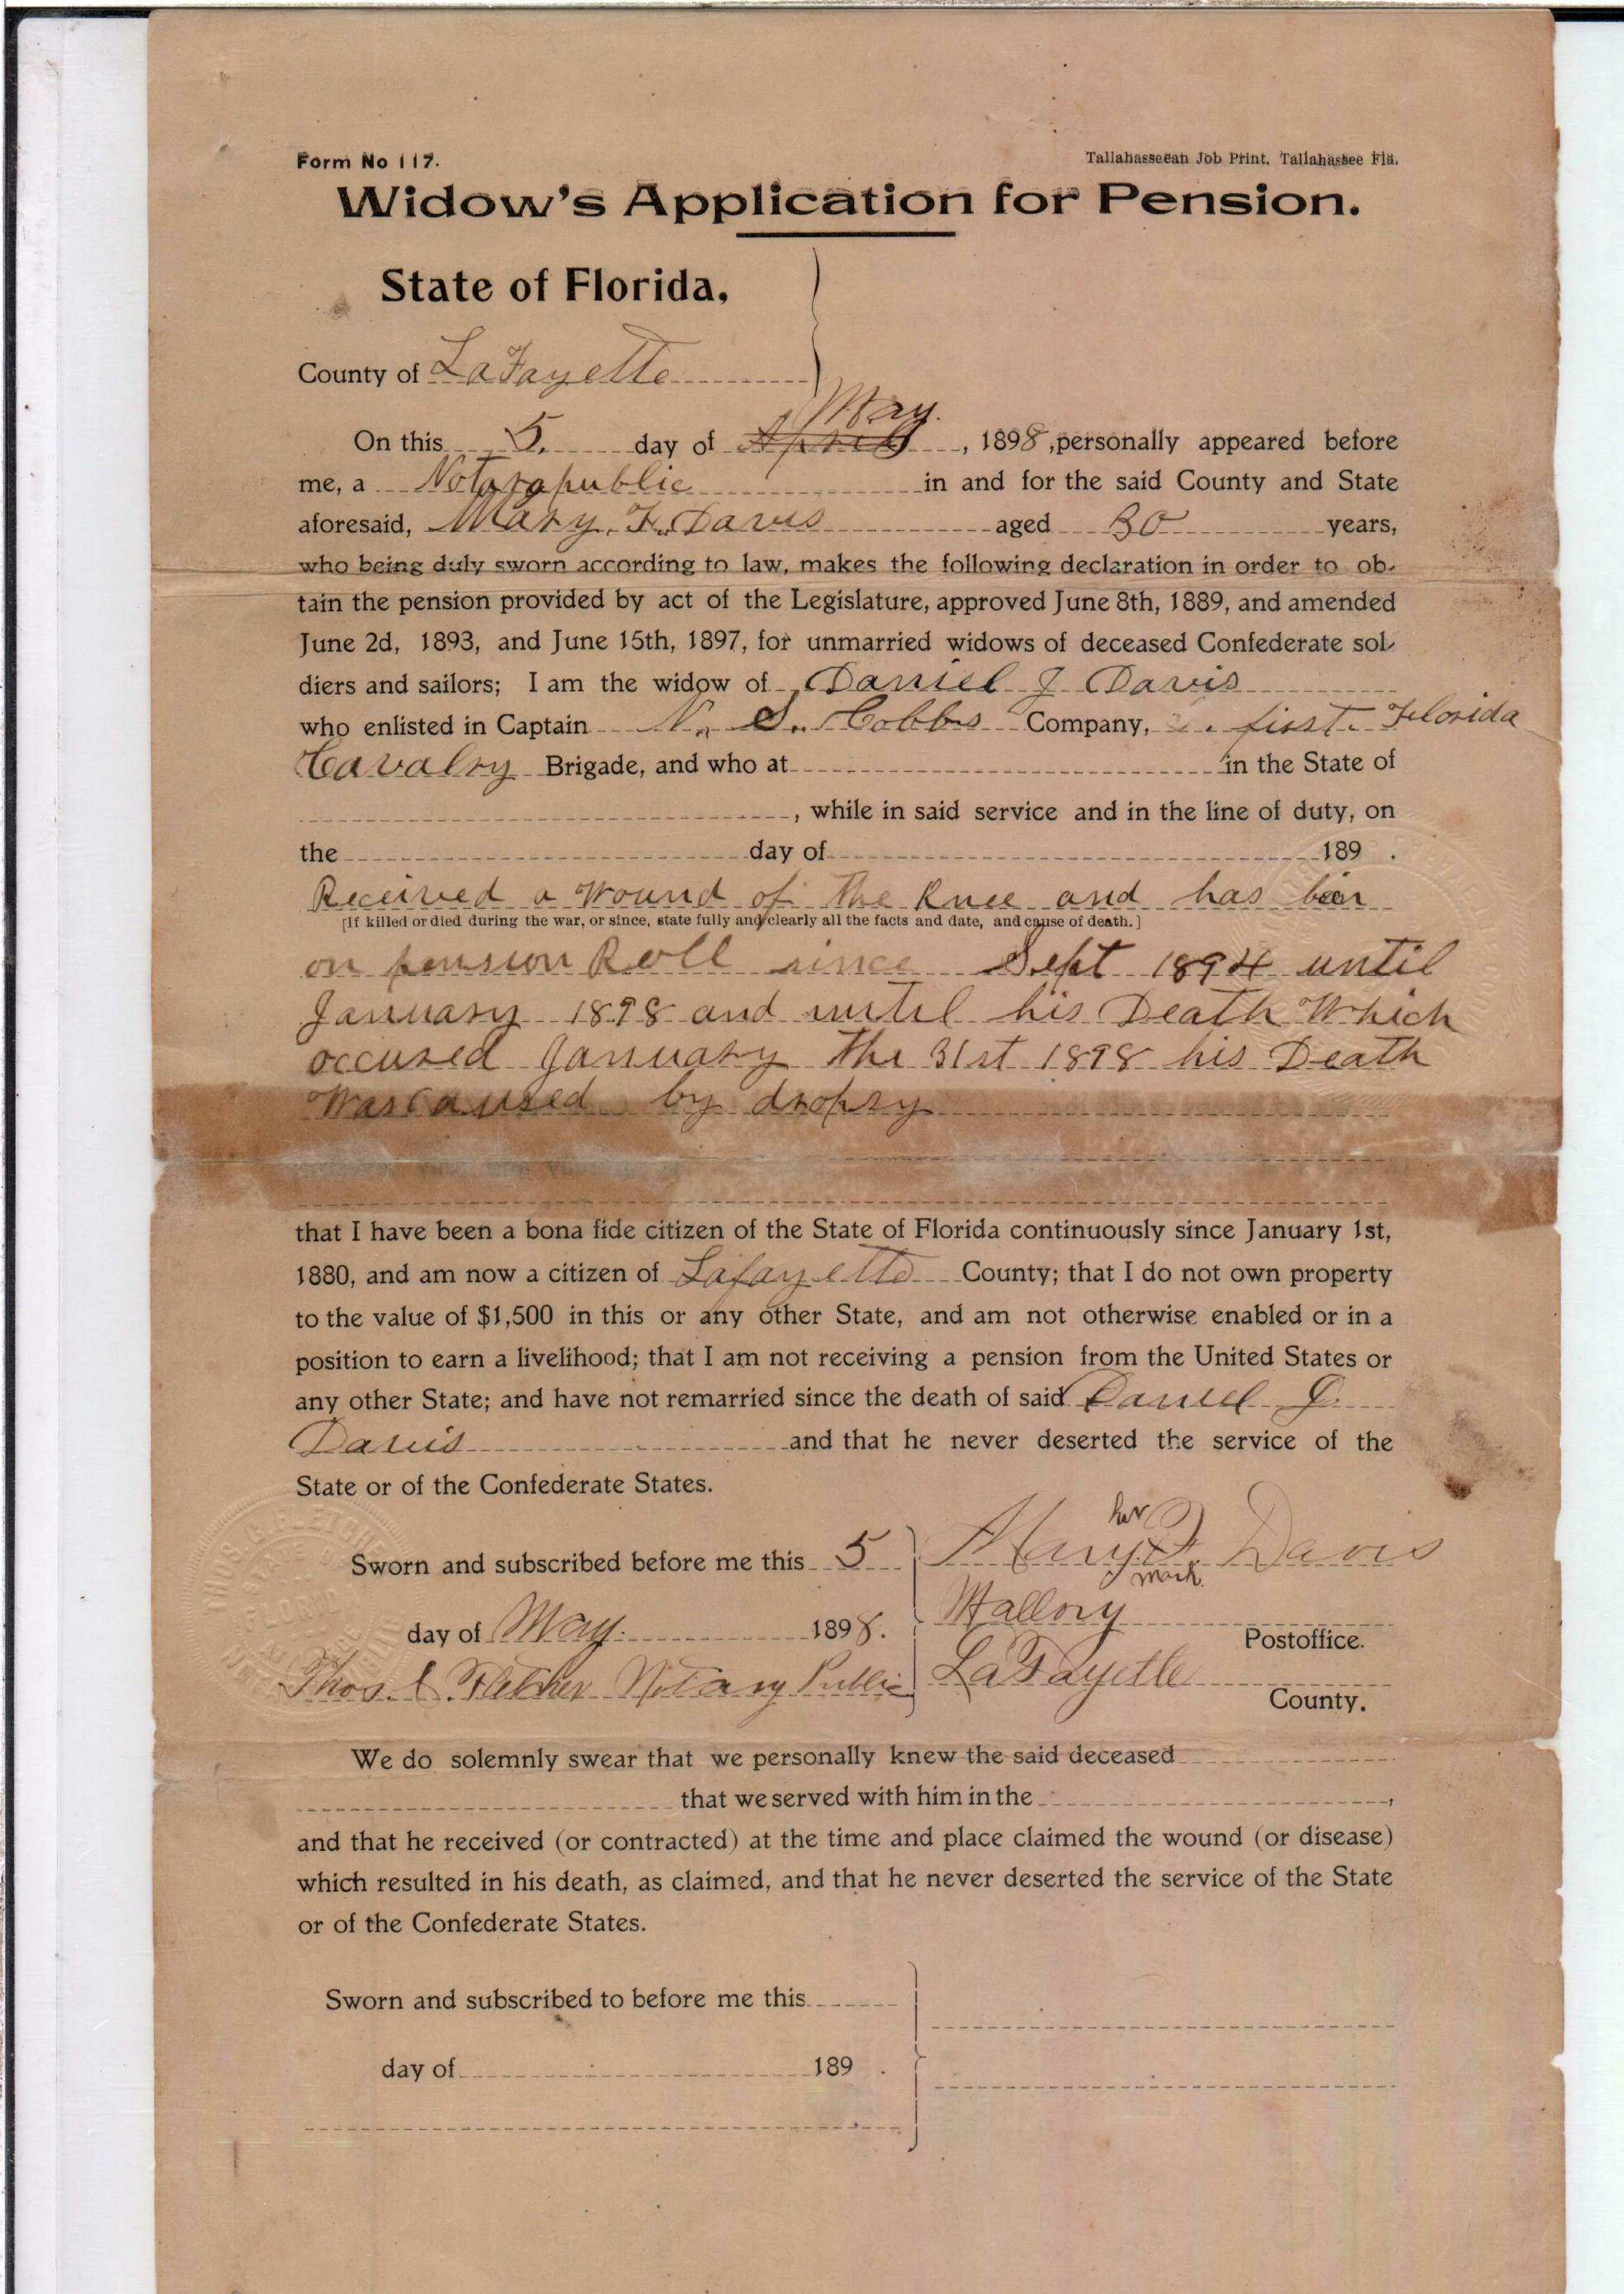 Form No 117.
Tallahasseean Job Print. Tallahassee Fla.
Widow's Application for Pension.
State of Florida,
County of LaFayette
May.
On this 5. day of April, 1898, personally appeared before
me, a Notarapublic in and for the said County and State
aforesaid, Mary. F. Davis aged 30 years,
who being duly sworn according to law, makes the following declaration in order to ob-
tain the pension provided by act of the Legislature, approved June 8th, 1889, and amended
June 2d, 1893, and June 15th, 1897, for unmarried widows of deceased Confederate sol-
diers and sailors; I am the widow of Daniel J Davis
who enlisted in Captain N. S. Cobbs Company, first. Florida
Cavalry Brigade, and who at in the State of
, while in said service and in the line of duty, on
the day of 189 .
Received a Wound of the Knee and has bin
[If killed or died during the war, or since, state fully and clearly all the facts and date, and cause of death.]
on pension Roll since Sept 1894 until
January 1898 and until his Death Which
occured January the 31st 1898 his Death
Was Caused by dropsy
that I have been a bona fide citizen of the State of Florida continuously since January 1st,
1880, and am now a citizen of Lafayette County; that I do not own property
to the value of $1,500 in this or any other State, and am not otherwise enabled or in a
position to earn a livelihood; that I am not receiving a pension from the United States or
any other State; and have not remarried since the death of said Daniel J.
Davis and that he never deserted the service of the
State or of the Confederate States.
her
Sworn and subscribed before me this 5 Mary X F. Davis
mark.
day of May. 1898. Mallory
Postoffice.
Thos. C. Fletcher Notary Public LaFayette
County.
We do solemnly swear that we personally knew the said deceased
that we served with him in the ,
and that he received (or contracted) at the time and place claimed the wound (or disease)
which resulted in his death, as claimed, and that he never deserted the service of the State
or of the Confederate States.
Sworn and subscribed to before me this
day of 189 .